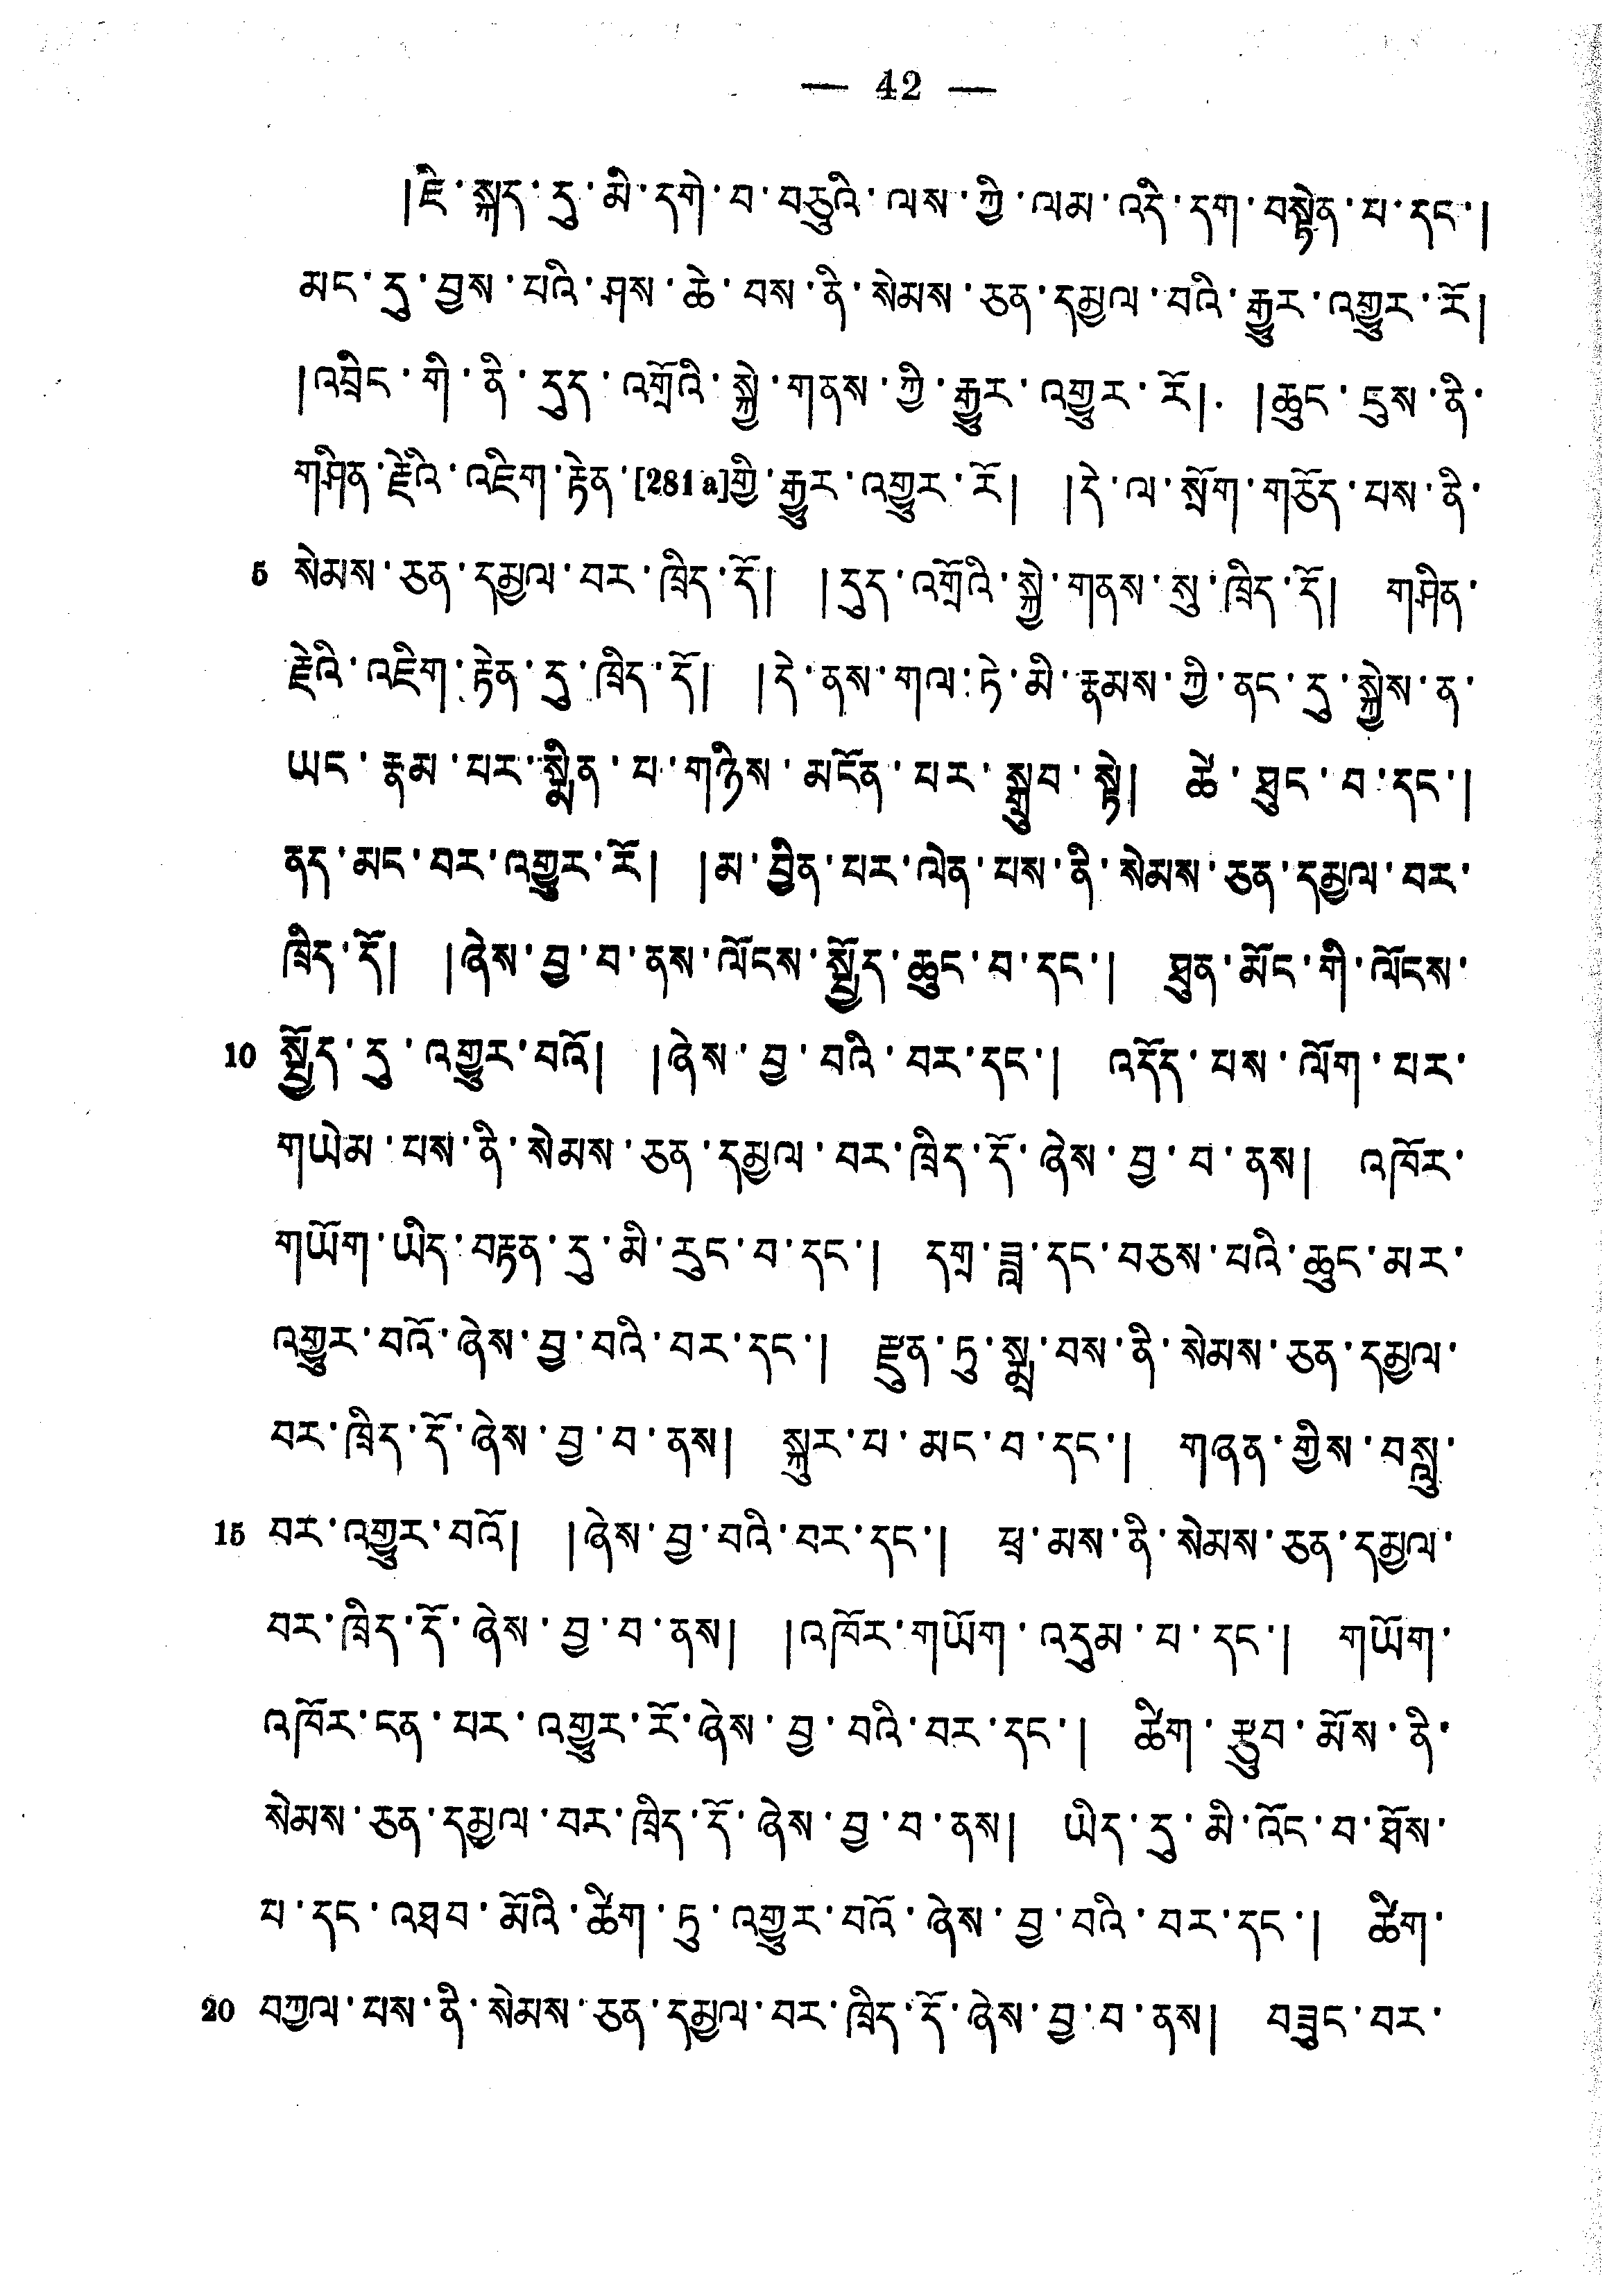 — 42 —
།ཇི་སྐད་དུ་མི་དགེ་བ་བཅུའི་ལས་ཀྱི་ལམ་འདི་དག་བསྟེན་པ་དང་།
མང་དུ་བྱས་པའི་ཤས་ཆེ་བས་ནི་སེམས་ཅན་དམྱལ་བའི་རྒྱུར་འགྱུར་རོ།
།འབྲིང་གི་ནི་དུད་འགྲོའི་སྐྱེ་གནས་ཀྱི་རྒྱུར་འགྱུར་རོ། །ཆུང་ངུས་ནི་
གཤིན་རྗེའི་འཇིག་རྟེན་[281a]གྱི་རྒྱུར་འགྱུར་རོ། །དེ་ལ་སྲོག་གཅོད་པས་ནི་
5 སེམས་ཅན་དམྱལ་བར་ཁྲིད་དོ། །དུད་འགྲོའི་སྐྱེ་གནས་སུ་ཁྲིད་དོ། གཤིན་
རྗེའི་འཇིག་རྟེན་དུ་ཁྲིད་དོ། །དེ་ནས་གལ་ཏེ་མི་རྣམས་ཀྱི་ནང་དུ་སྐྱེས་ན་
ཡང་རྣམ་པར་སྨིན་པ་གཉིས་མངོན་པར་སྒྲུབ་སྟེ། ཚེ་ཐུང་བ་དང་།
ནད་མང་བར་འགྱུར་རོ། །མ་བྱིན་པར་ལེན་པས་ནི་སེམས་ཅན་དམྱལ་བར་
ཁྲིད་དོ། །ཞེས་བྱ་བ་ནས་ལོངས་སྤྱོད་ཆུང་བ་དང་། ཐུན་མོང་གི་ལོངས་
10 སྤྱོད་དུ་འགྱུར་བའོ། །ཞེས་བྱ་བའི་བར་དང་། འདོད་པས་ལོག་པར་
གཡེམ་པས་ནི་སེམས་ཅན་དམྱལ་བར་ཁྲིད་དོ་ཞེས་བྱ་བ་ནས། འཁོར་
གཡོག་ཡིད་བརྟན་དུ་མི་རུང་བ་དང་། དགྲ་ཟླ་དང་བཅས་པའི་ཆུང་མར་
འགྱུར་བའོ་ཞེས་བྱ་བའི་བར་དང་། རྫུན་ཏུ་སྨྲ་བས་ནི་སེམས་ཅན་དམྱལ་
བར་ཁྲིད་དོ་ཞེས་བྱ་བ་ནས། སྐུར་པ་མང་བ་དང་། གཞན་གྱིས་བསླུ་
15 བར་འགྱུར་བའོ། །ཞེས་བྱ་བའི་བར་དང་། ཕྲ་མས་ནི་སེམས་ཅན་དམྱལ་
བར་ཁྲིད་དོ་ཞེས་བྱ་བ་ནས། །འཁོར་གཡོག་འདྲུམ་པ་དང་། གཡོག་
འཁོར་ངན་པར་འགྱུར་རོ་ཞེས་བྱ་བའི་བར་དང་། ཚིག་རྩུབ་མོས་ནི་
སེམས་ཅན་དམྱལ་བར་ཁྲིད་དོ་ཞེས་བྱ་བ་ནས། ཡིད་དུ་མི་འོང་བ་ཐོས་
པ་དང་འཐབ་མོའི་ཚིག་ཏུ་འགྱུར་བའོ་ཞེས་བྱ་བའི་བར་དང་། ཚིག་
20 བཀྱལ་པས་ནི་སེམས་ཅན་དམྱལ་བར་ཁྲིད་དོ་ཞེས་བྱ་བ་ནས། བཟུང་བར་